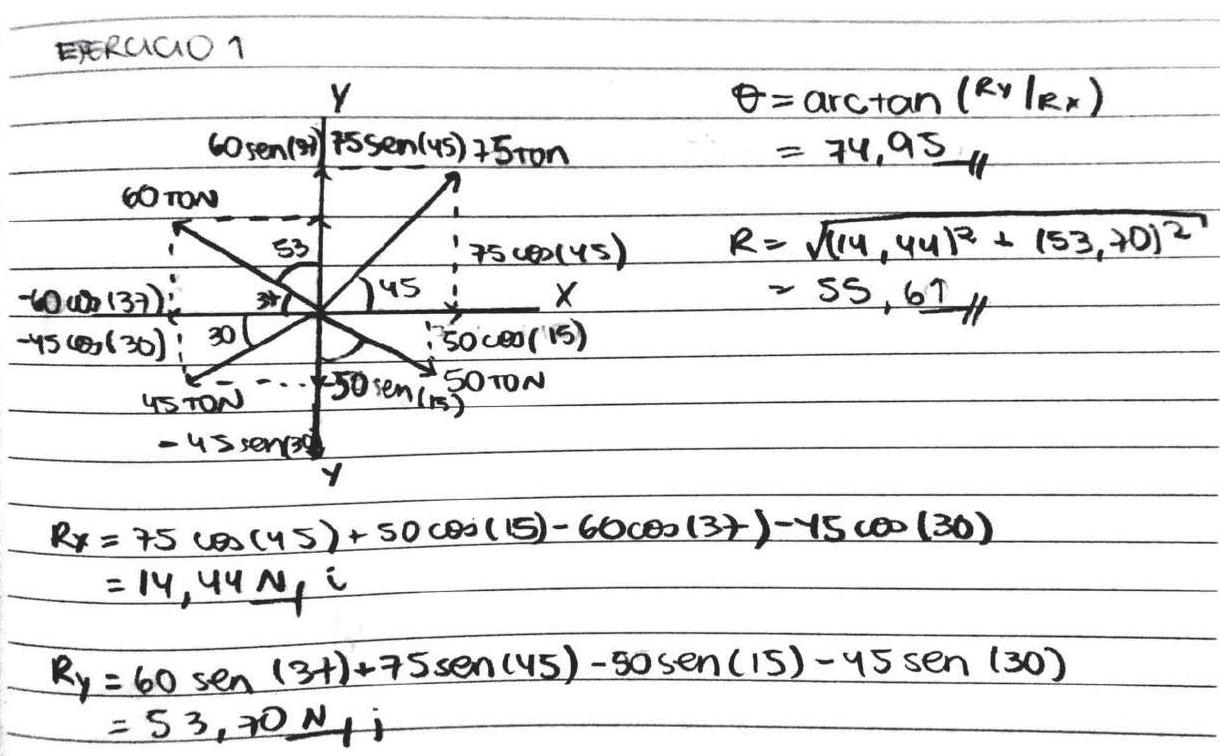 EJERCICIO 1
Y
60 sen(37) 75 sen(45) 75 TON
60 TON
53
75 cos(45)
-60 cos(37)
37
45
X
-45 cos(30)
30
50 cos(15)
45 TON
-50 sen(15)
50 TON
-45 sen(30
Y
θ = arctan (Ry/Rx)
= 74,95
R = √(14,44)² + (53,70)²
= 55,61
Rx = 75 cos(45) + 50 cos(15) - 60 cos(37) - 45 cos(30)
= 14,44 N, i
Ry = 60 sen (37) + 75 sen(45) - 50 sen(15) - 45 sen (30)
= 53,70 N, j